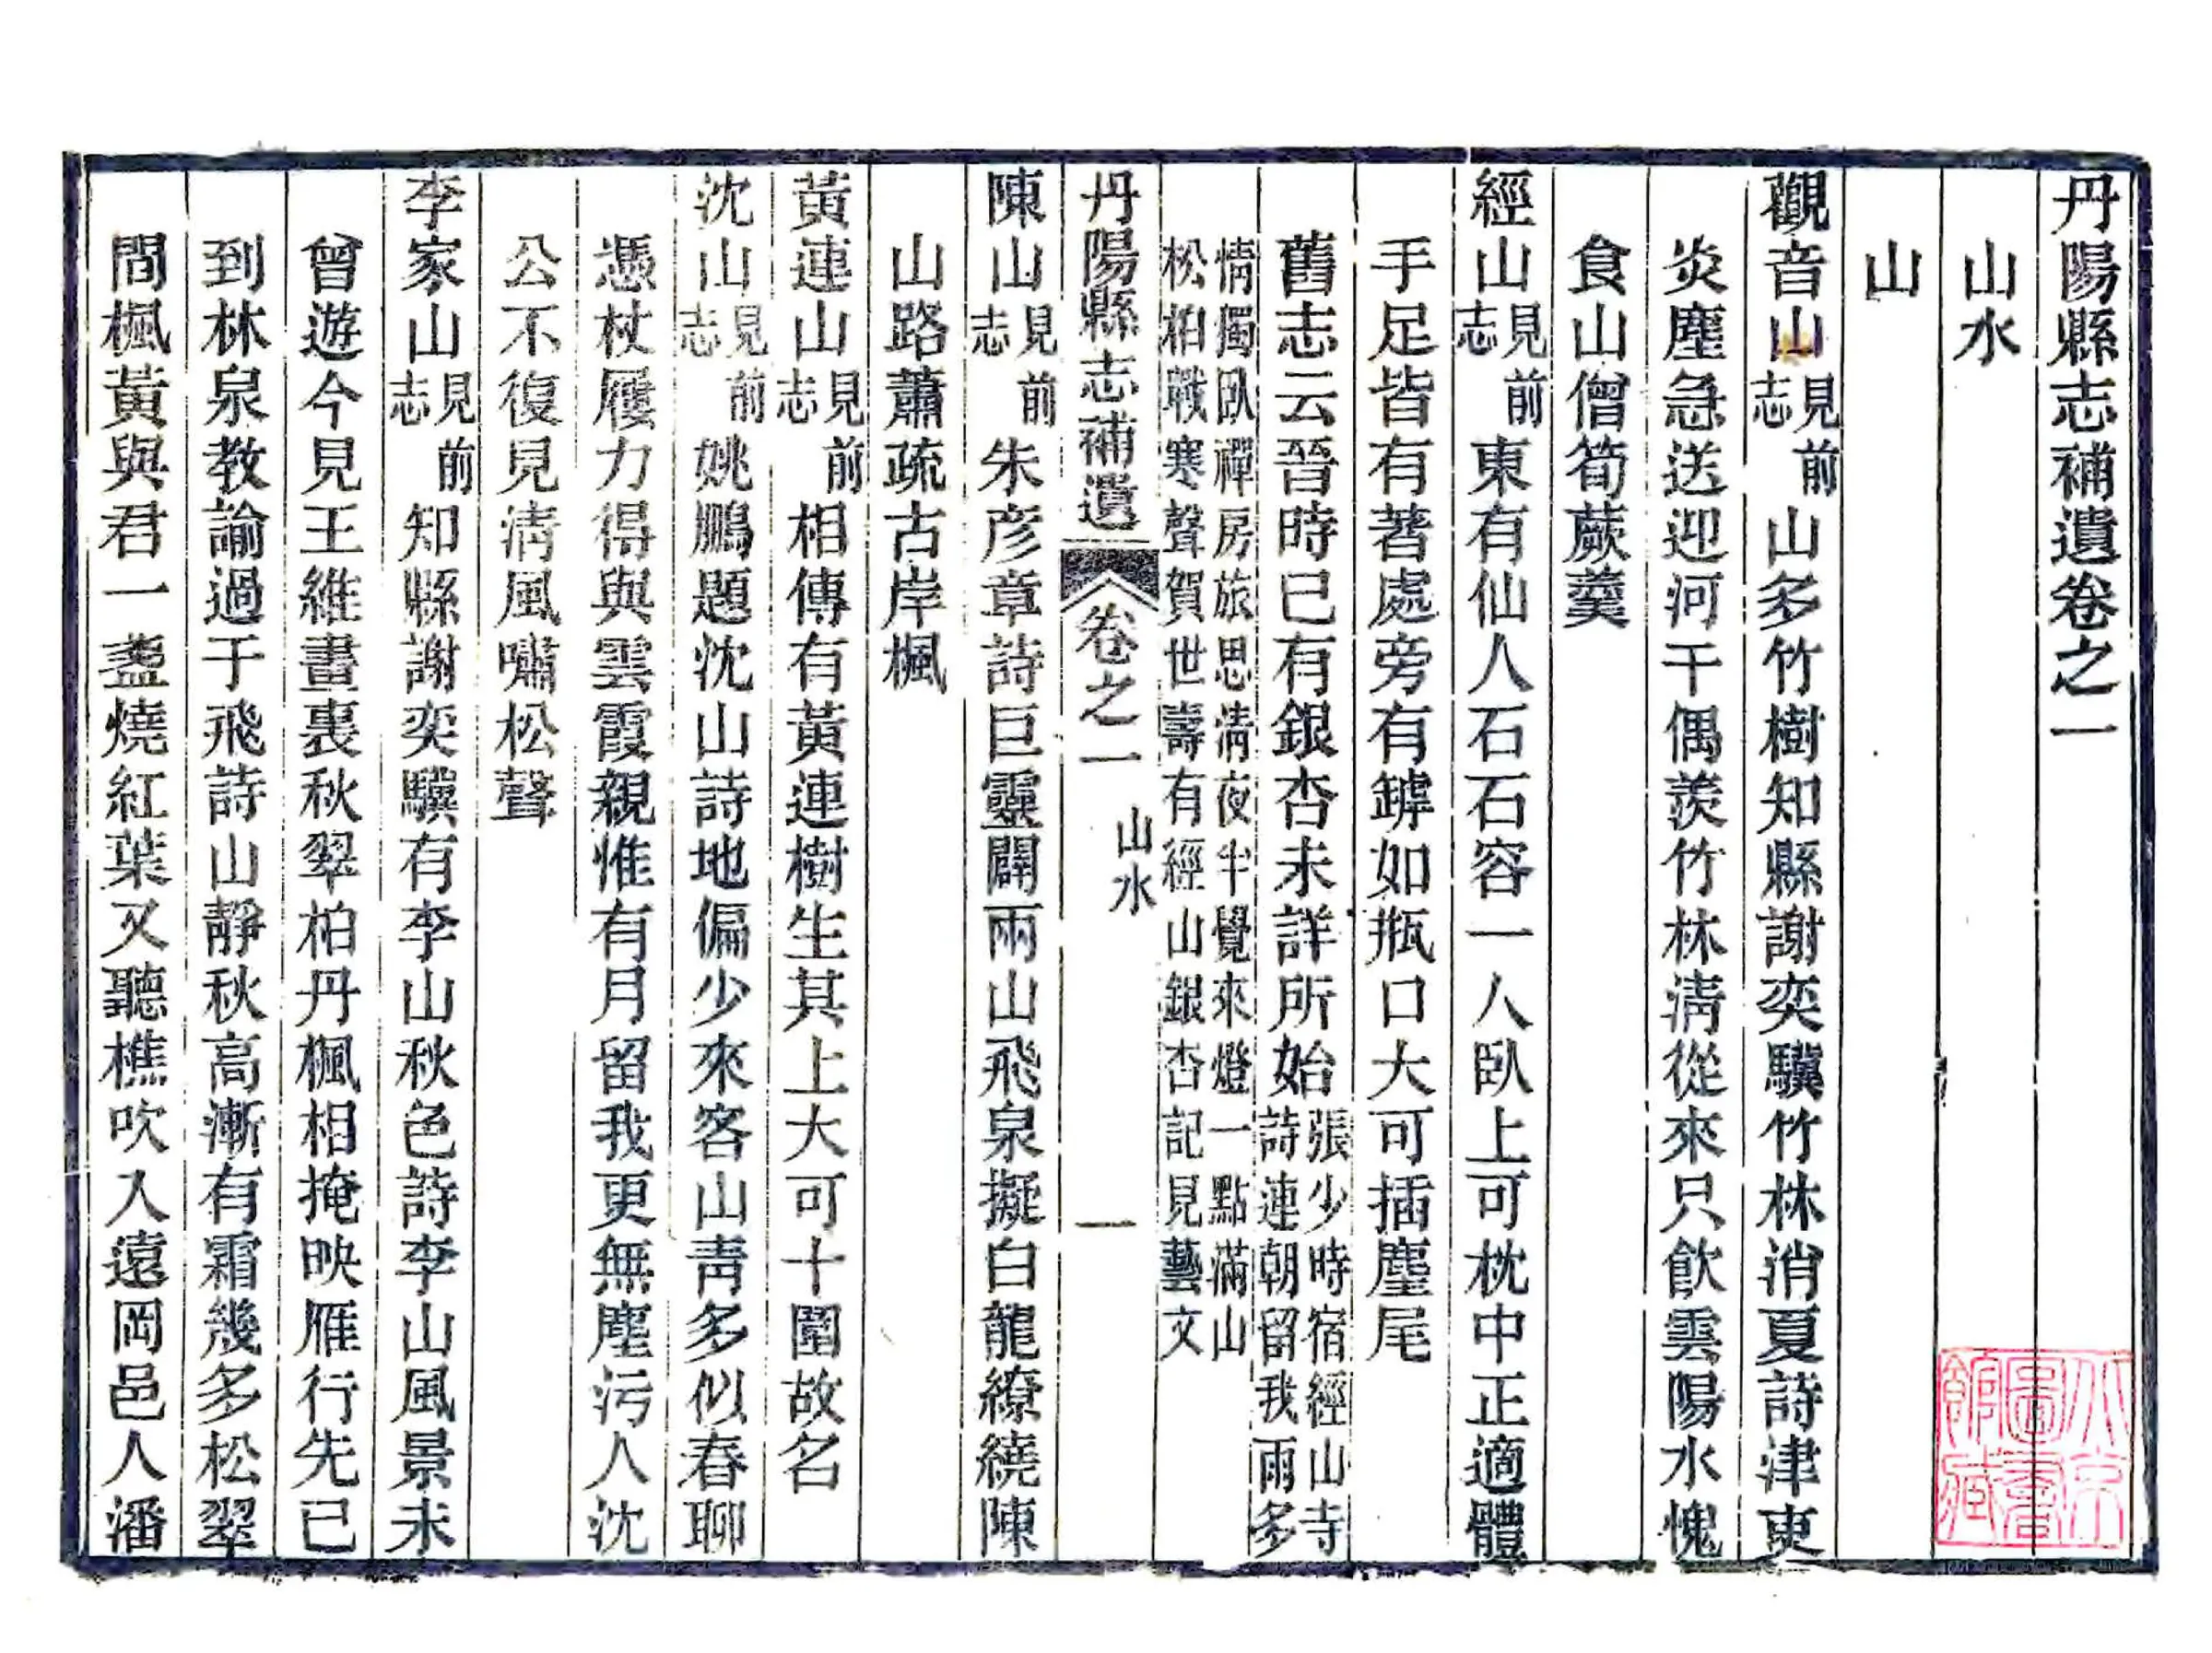 丹陽縣志補遺卷之一
山水
山
觀音山見前志山多竹樹知縣謝奕驥竹林消夏詩津吏
炎塵急送迎河干偶羨竹林淸從來只飮雲陽水愧
食山僧筍蕨羹
經山見前志東有仙人石石容一人臥上可枕中正適體
手足皆有著處旁有罅如瓶口大可插麈尾
舊志云晉時已有銀杏未詳所始張少時宿經山寺詩連朝留我雨多
情獨臥禪房旅思淸夜半覺來燈一點滿山松柏戰寒聲賀世壽有經山銀杏記見藝文
丹陽縣志補遺 卷之一 山水 一
陳山見前志朱彥章詩巨靈闢兩山飛泉擬白龍繚繞陳
山路蕭疏古岸楓
黃連山見前志相傳有黃連樹生其上大可十圍故名
沈山見前志姚鵬題沈山詩地偏少來客山靑多似春聊
憑杖屨力得與雲霞親惟有月留我更無塵污人沈
公不復見淸風嘯松聲
李家山見前志知縣謝奕驥有李山秋色詩李山風景未
曾遊今見王維畫裏秋翠柏丹楓相掩映雁行先已
到林泉教諭過于飛詩山靜秋高漸有霜幾多松翠
間楓黃與君一盞燒紅葉又聽樵吹入遠岡邑人潘
北京圖書館藏